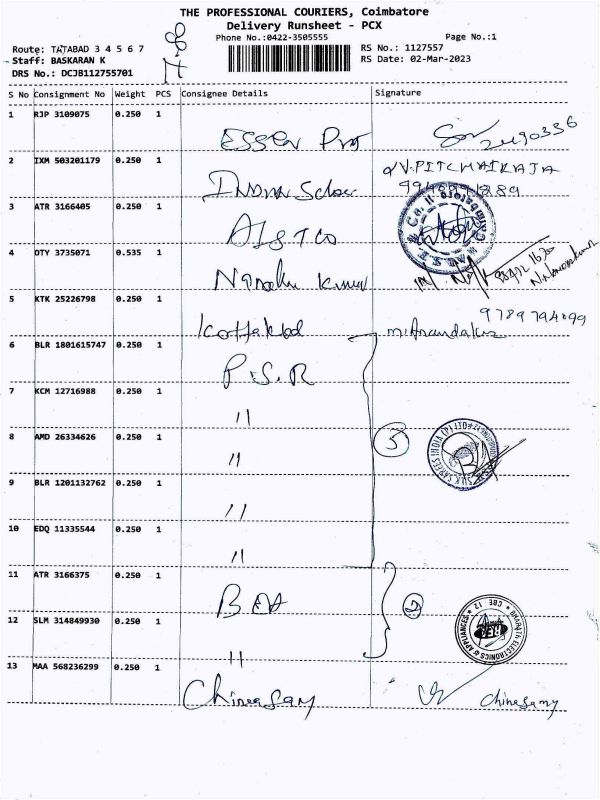 THE PROFESSIONAL COURIERS, Coimbatore
Delivery Runsheet - PCX
Phone No.:0422-3505555
Page No.:1
Route: TATABAD 3 4 5 6 7
RS No.: 1127557
Staff: BASKARAN K
RS Date: 02-Mar-2023
DRS No.: DCJB112755701
S No Consignment No Weight PCS Consignee Details Signature
1 RJP 3109075 0.250 1
2 IXM 503201179 0.250 1
3 ATR 3166405 0.250 1
4 OTY 3735071 0.535 1
Kumar
5 KTK 25226798 0.250 1
9789794099
6 BLR 1801615747 0.250 1 P.S.R
7 KCM 12716988 0.250 1 "
8 AMD 26334626 0.250 1 " 5
9 BLR 1201132762 0.250 1 "
10 EDQ 11335544 0.250 1 "
11 ATR 3166375 0.250 1 2
12 SLM 314849930 0.250 1 "
BHARATH ELECTRONICS & APPLIANCES * CBE 12 *
13 MAA 568236299 0.250 1 Chinasamy Chinasamy